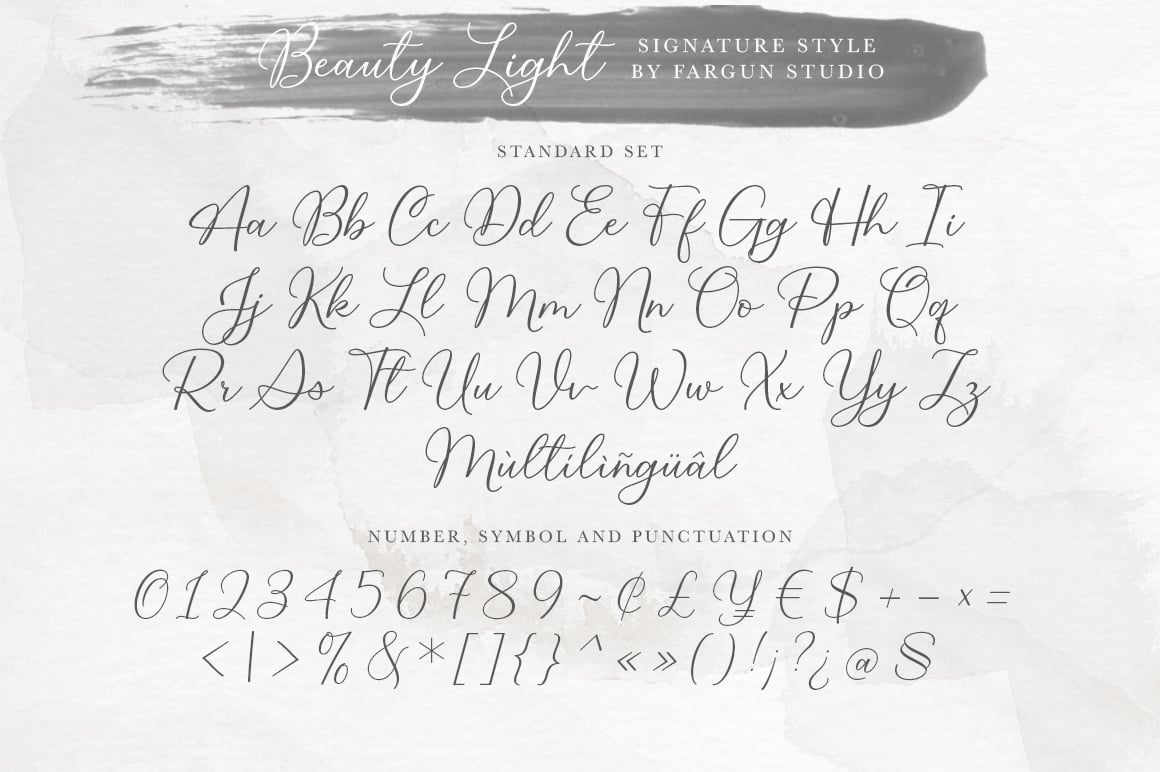 Beauty Light SIGNATURE STYLE
BY FARGUN STUDIO
STANDARD SET
Aa Bb Cc Dd Ee Ff Gg Hh Ii
Jj Kk Ll Mm Nn Oo Pp Qq
Rr Ss Tt Uu Vv Ww Xx Yy Zz
Mùltílìñgüâl
NUMBER, SYMBOL AND PUNCTUATION
0 1 2 3 4 5 6 7 8 9 ~ ₵ £ ¥ € $ + − × =
< | > % & * [ ] { } ^ « » ( ) ! ¡ ? ¿ @